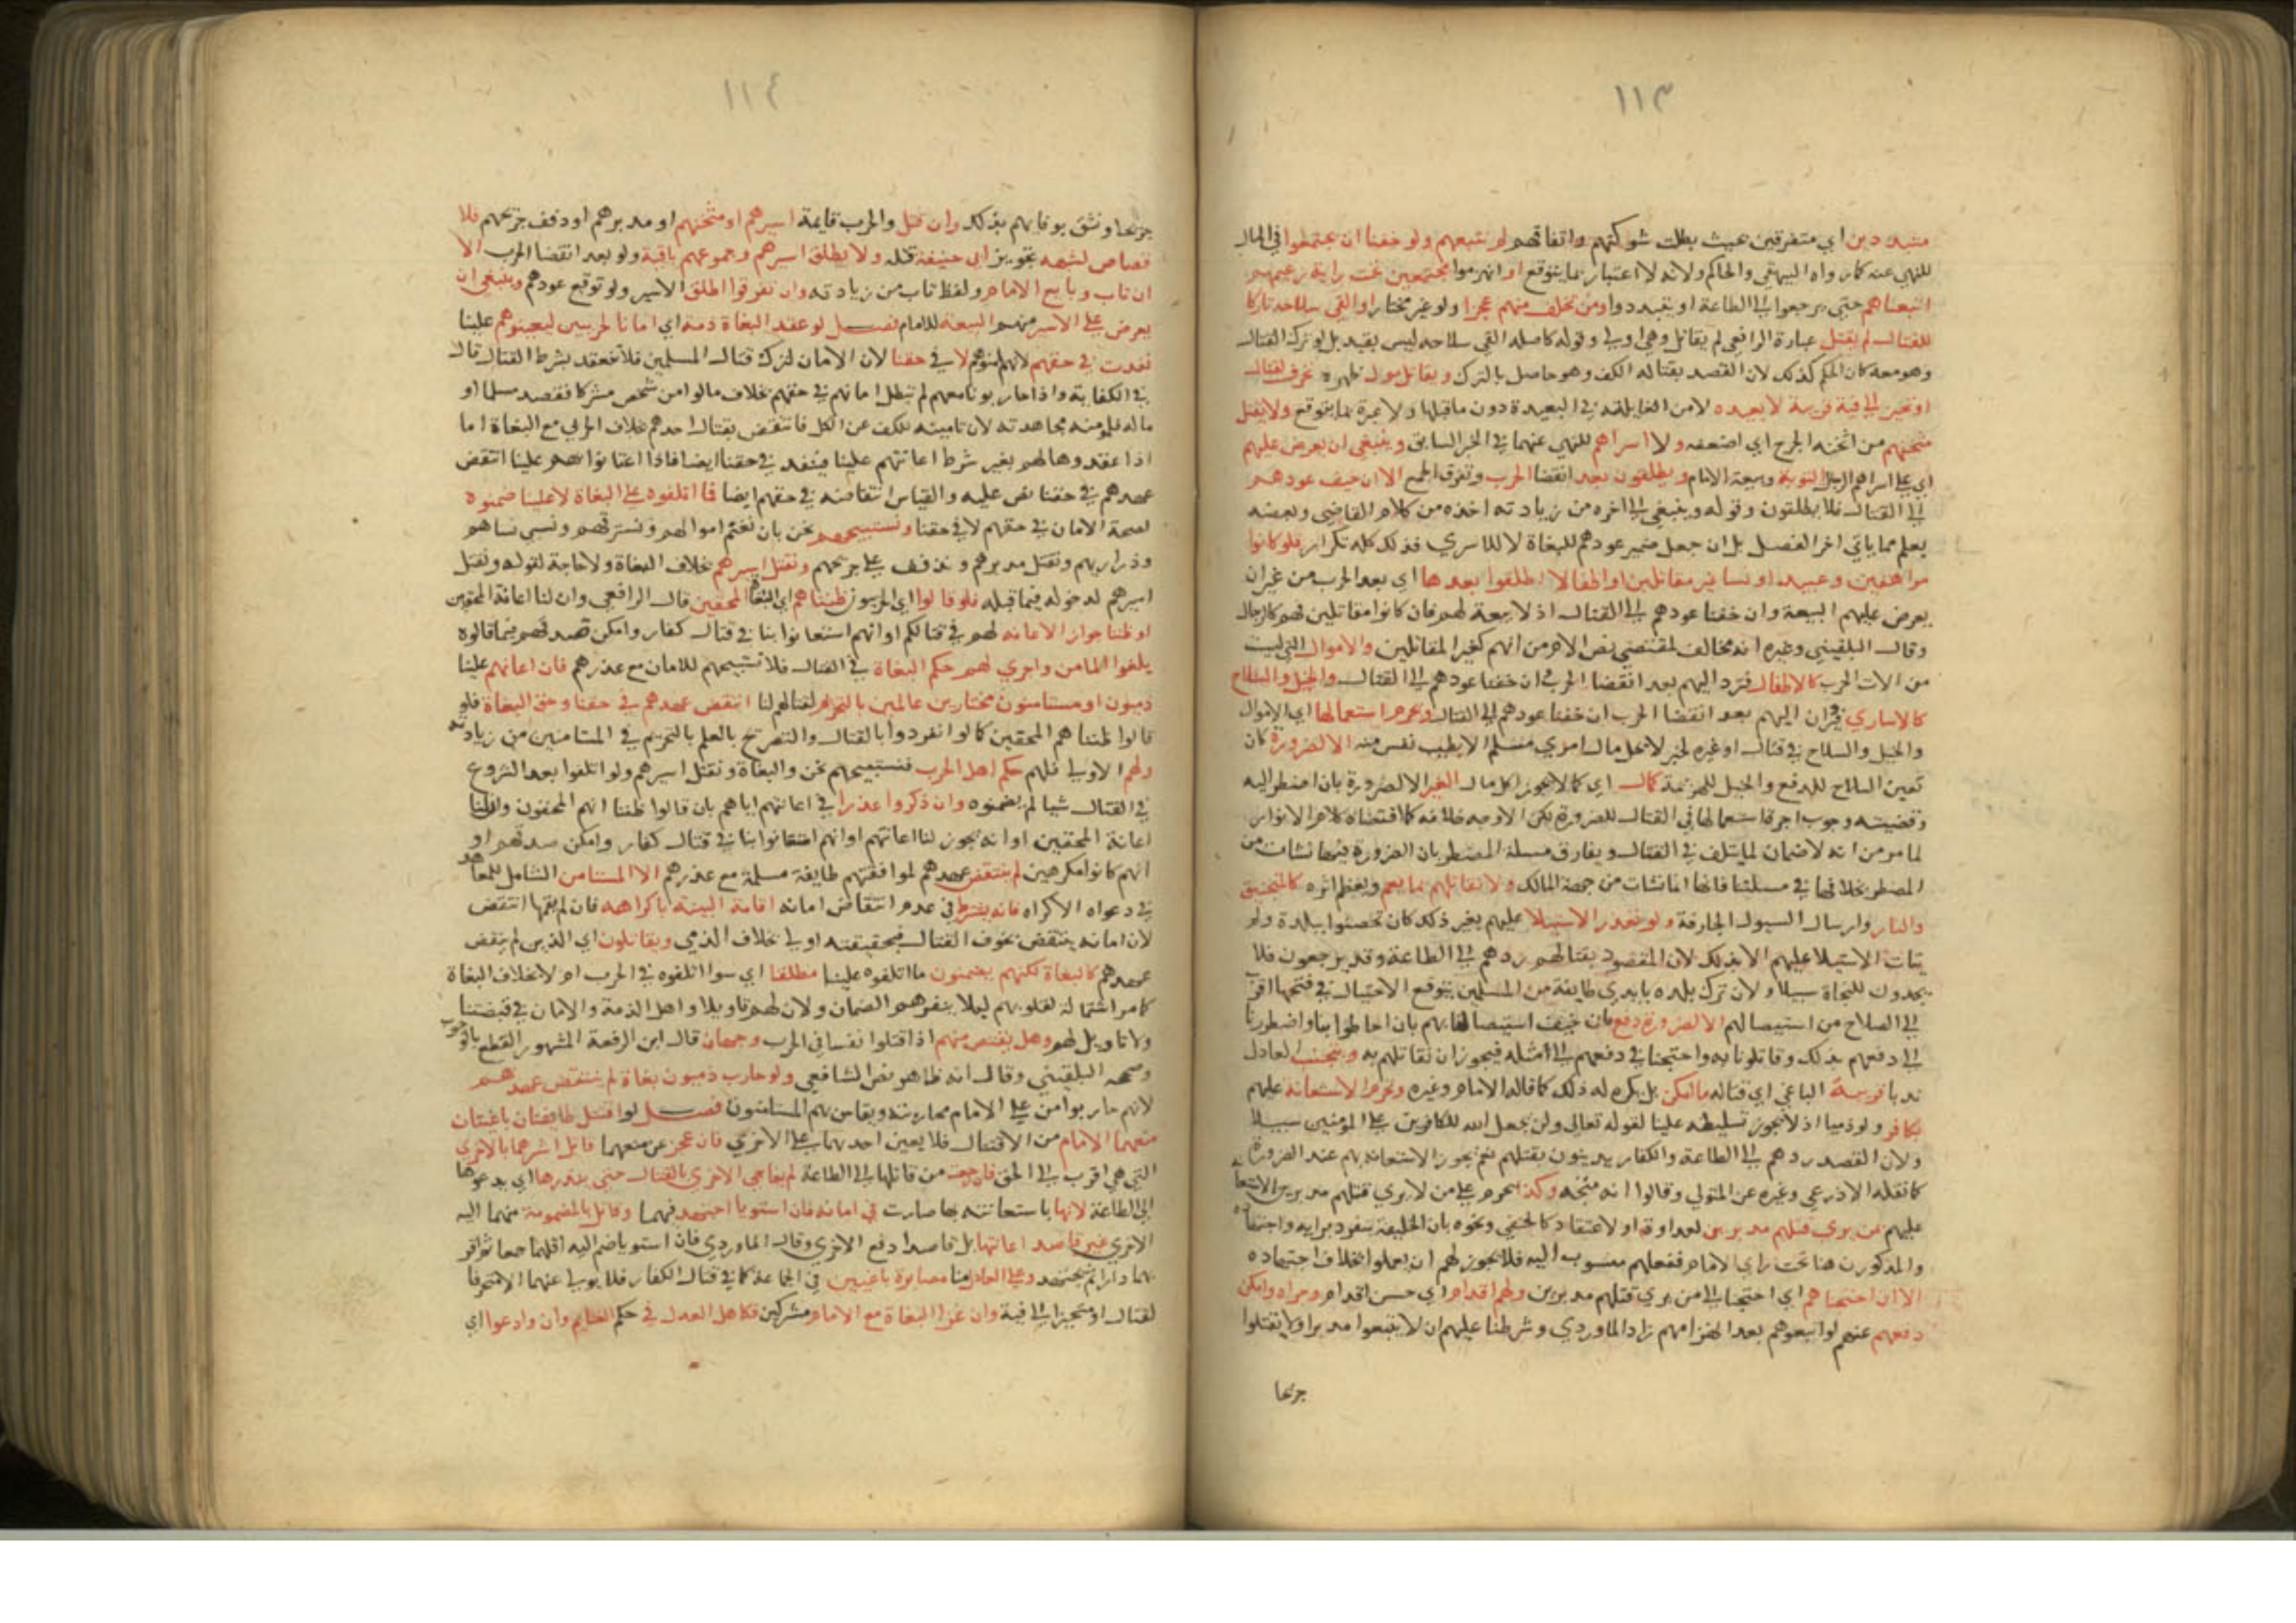 ١١٣
متبددين اي متفرقين بحيث بطلت شوكتهم واتفاقهم لم نتبعهم ولو خفنا ان يجتمعوا في المال
للنهي عنه كما رواه البيهقي والحاكم ولانه لا اعتبار بما يتوقع او انهزموا مجتمعين تحت راية زعيمهم
اتبعناهم حتي يرجعوا الي الطاعة او يتبددوا ومن تخلف منهم عجزا ولو غير مختار او القي سلاحه تاركا
للقتال لم يقتل عبارة الرافعي لم يقاتل وهي اولي وقوله كاصله القي سلاحه ليس بقيد بل لو ترك القتال
وهو معه كان الحكم كذلك لان القصد بقتاله الكف وهو حاصل بالترك ويقاتل مول ظهره تحرف لقتال
او تحيز الي فية قريبة لا بعيده لامن الغايلة في البعيدة دون ما قبلها ولا عبرة بما يتوقع ولا يقتل
مثخنهم من اثخنه الجرح اي اضعفه ولا اسراهم للنهي عنهما في الخبر السابق وينبغي ان يعرض عليهم
اي علي اسراهم الرجال التوبة وبيعة الامام ويطلقون بعد انقضا الحرب وتفرق الجمع الا ان خيف عودهم
الي القتال فلا يطلقون وقوله وينبغي الي اخره من زيادته اخذه من كلام القاضي وبعضه
يعلم مما ياتي اخر الفصل بل ان جعل ضمير عودهم للبغاة لا للاسري فذلك كله تكرار فلو كانوا
مراهقين وعبيدا ونسا غير مقاتلين او اطفالا اطلقوا بعدها اي بعد الحرب من غير ان
يعرض عليهم البيعة وان خفنا عودهم الي القتال اذ لا بيعة لهم فان كانوا مقاتلين فهم كالرجال
وقال البلقيني وغيره انه مخالف لمقتضي نص الام من انهم كغير المقاتلين والاموال التي ليست
من الات الحرب كالاطفال فترد اليهم بعد انقضا الحرب وان خفنا عودهم الي القتال والخيل والسلاح
كالاساري فيردان اليهم بعد انقضا الحرب ان خفنا عودهم الي القتال ويحرم استعمالها اي الاموال
والخيل والسلاح في قتال او غيره لخبر لا يحل مال امري مسلم الا بطيب نفس منه الا لضرورة كان
تعين السلاح للدفع والخيل للهزيمة كال اي كما لا يجوز اكل مال الغير الا لضرورة بان اضطر اليه
وقضيته وجوب اجرة استعمالها في القتال للضرورة لكن الاوجه خلافه كما اقتضاه كلام الانوار
لما مر من انه لا ضمان لما يتلف في القتال ويفارق مسلة المضطر بان الضرورة فيها نشات من
المضطر بخلافها في مسلتنا فانها انما نشات من جهة المالك ولا نقاتلهم بما يعم ويعظم اثره كالمنجنيق
والنار وارسال السيول الجارفة ولو تعذر الاستيلا عليهم بغير ذلك كان تحصنوا ببلدة ولم
يتات الاستيلا عليهم الا بذلك لان المقصود بقتالهم ردهم الي الطاعة وقد يرجعون فلا
يجدون للنجاة سبيلا ولان ترك بلده بايدي طايفة من المسلمين يتوقع الاحتيال في فتحها اقرب
الي الصلاح من استيصالهم الا لضرورة دفع بان خيف استيصالنا بهم بان احاطوا بنا واضطررنا
الي دفعهم بذلك وقاتلونا به واحتجنا في دفعهم الي مثله فيجوز ان نقاتلهم به ويتجنب العادل
ندبا قريبه الباغي اي قتاله ما امكن بل يكره له ذلك كما قاله الامام وغيره وتحرم الاستعانة عليهم
بكافر ولو ذميا اذ لا يجوز تسليطه علينا لقوله تعالي ولن يجعل الله للكافرين علي المؤمنين سبيلا
ولان القصد ردهم الي الطاعة والكفار يتدينون بقتلهم نعم يجوز الاستعانة بهم عند الضرورة
كما نقله الاذرعي وغيره عن المتولي وقالوا انه متجه وكذا تحرم علي من لا يري قتلهم مدبرين الاستعانة
عليهم بمن يري قتلهم مدبرين لعداوة او لاعتقاد كالحنفي ونحوه بان الخليفة ينفرد برايه واجتهاده
والمذكورن هنا تحت راي الامام ففعلهم منسوب اليه فلا يجوز لهم ان يعملوا بخلاف اجتهاده
الا ان احتجناهم اي احتجنا الي من يري قتلهم مدبرين ولهم اقدام اي حسن اقدام وجراه وامكن
دفعهم عنهم لو اتبعوهم بعد انهزامهم زاد الماوردي وشرطنا عليهم ان لا يتبعوا مدبرا ولا يقتلوا
جريحا
١١٤
جريحا ونثق بوفايهم بذلك وان قتل والحرب قايمة اسيرهم او مثخنهم او مدبرهم او دفف جريحهم فلا
قصاص لشبهة تجويز ابي حنيفة قتله ولا يطلق اسيرهم وجموعهم باقية ولو بعد انقضا الحرب الا
ان تاب وبايع الامام ولفظ تاب من زيادته وان تفرقوا اطلق الاسير ولو توقع عودهم وينبغي ان
يعرض علي الاسير منهم البيعة للامام فصل لو عقد البغاة ذمة اي امانا لحربيين ليعينوهم علينا
نفذت في حقهم لانهم امنوهم لا في حقنا لان الامان لترك قتال المسلمين فلا ينعقد بشرط القتال قال
في الكفاية واذا حاربونا معهم لم تبطل امانهم في حقهم بخلاف ما لو امن شخص مشركا فقصد مسلما او
ماله فله ومنه مجاهدته لان تامينه للكف عن الكل فانتقض بقتال احدهم بخلاف الحربي مع البغاة اما
اذا عقدوها لهم بغير شرط اعانتهم علينا فينفذ في حقنا ايضا فاذا اعتانوا بهم علينا انتقض
عهدهم في حقنا نص عليه والقياس انتقاضه في حقهم ايضا فما اتلفوه علي البغاة لا علينا ضمنوه
لصحة الامان في حقهم لا في حقنا ونستبيحهم نحن بان نغنم اموالهم ونسترقهم ونسبي نساهم
وذراريهم ونقتل مدبرهم ونذفف علي جريحهم ونقتل اسيرهم بخلاف البغاة ولا حاجة لقوله ونقتل
اسيرهم لدخوله فيما قبله فلو قالوا اي الحربيون ظنناهم اي البغاة المحقين قال الرافعي وان لنا اعانة المحقين
او ظننا جواز الاعانه لهم في قتالكم او انهم استعانوا بنا في قتال كفار وامكن صدقهم فيما قالوه
بلغوا المامن واجري لهم حكم البغاة في القتال فلا نستبيحهم للامان مع عذرهم فان اعانهم علينا
ذميون او مستامنون مختارين عالمين بالتحريم لقتالهم لنا انتقض عهدهم في حقنا وحق البغاة فلو
قالوا ظنناهم المحقين كما لو انفردوا بالقتال والتصريح بالعلم بالتحريم في المستامنين من زيادته
ولهم الاولي فلهم حكم اهل الحرب فنستبيحهم نحن والبغاة ونقتل اسيرهم ولو اتلفوا بعد الشروع
في القتال شيا لم يضمنوه وان ذكروا عذرا في اعانتهم اياهم بان قالوا ظننا انهم المحقون وان لنا
اعانة المحقين او انه يجوز لنا اعانتهم او انهم استعانوا بنا في قتال كفار وامكن صدقهم او
انهم كانوا مكرهين لم ينتقض عهدهم لموافقتهم طايفة مسلمة مع عذرهم الا المستامن الشامل للمعاهد
في دعواه الاكراه فانه يشترط في عدم انتقاض امانه اقامة البينة باكراهه فان لم يقمها انتقض
لان امانه ينتقض بخوف القتال فبحقيقته اولي بخلاف الذمي ويقاتلون اي الذين لم ينقض
عهدهم كالبغاة لكنهم يضمنون ما اتلفوه علينا مطلقا اي سوا اتلفوه في الحرب ام لا بخلاف البغاة
كما مر استمالة لقلوبهم ليلا ينفرهم الضمان ولان لهم تاويلا واهل الذمة والامان في قبضتنا
ولا تاويل لهم وهل يقتص منهم اذا قتلوا نفسا في الحرب وجهان قال ابن الرفعة المشهور القطع بالوجوب
وصححه البلقيني وقال انه ظاهر نص الشافعي ولو حارب ذميون بغاة لم ينتقض عهدهم
لانهم حاربوا من علي الامام محاربته ويقاس بهم المستامنون فصل لو اقتتل طايفتان باغيتان
منعهما الامام من الاقتتال فلا يعين احديهما علي الاخري فان عجز عن منعهما قاتل اشرهما بالاخري
التي هي اقرب الي الحق فان رجعت من قاتلها الي الطاعة لم يفاجي الاخري بالقتال حتي ينذرها اي يدعوها
الي الطاعة لانها باستعانته بها صارت في امانه فان استويا اجتهد فيهما وقاتل بالمضمومة منهما اليه
الاخري غير قاصد اعانتها بل قاصدا دفع الاخري وقال الماوردي فان استويا ضم اليه اقلهما جمعا ثم اقر
بهما دارا ثم يجتهد وعلي العادل منا مصابرة باغيين في الجماعة كما في قتال الكفار فلا يولي عنهما الا متحرفا
لقتال او متحيزا الي فية وان غزا البغاة مع الامام مشركين فكاهل العدل في حكم الغنايم وان وادعوا اي